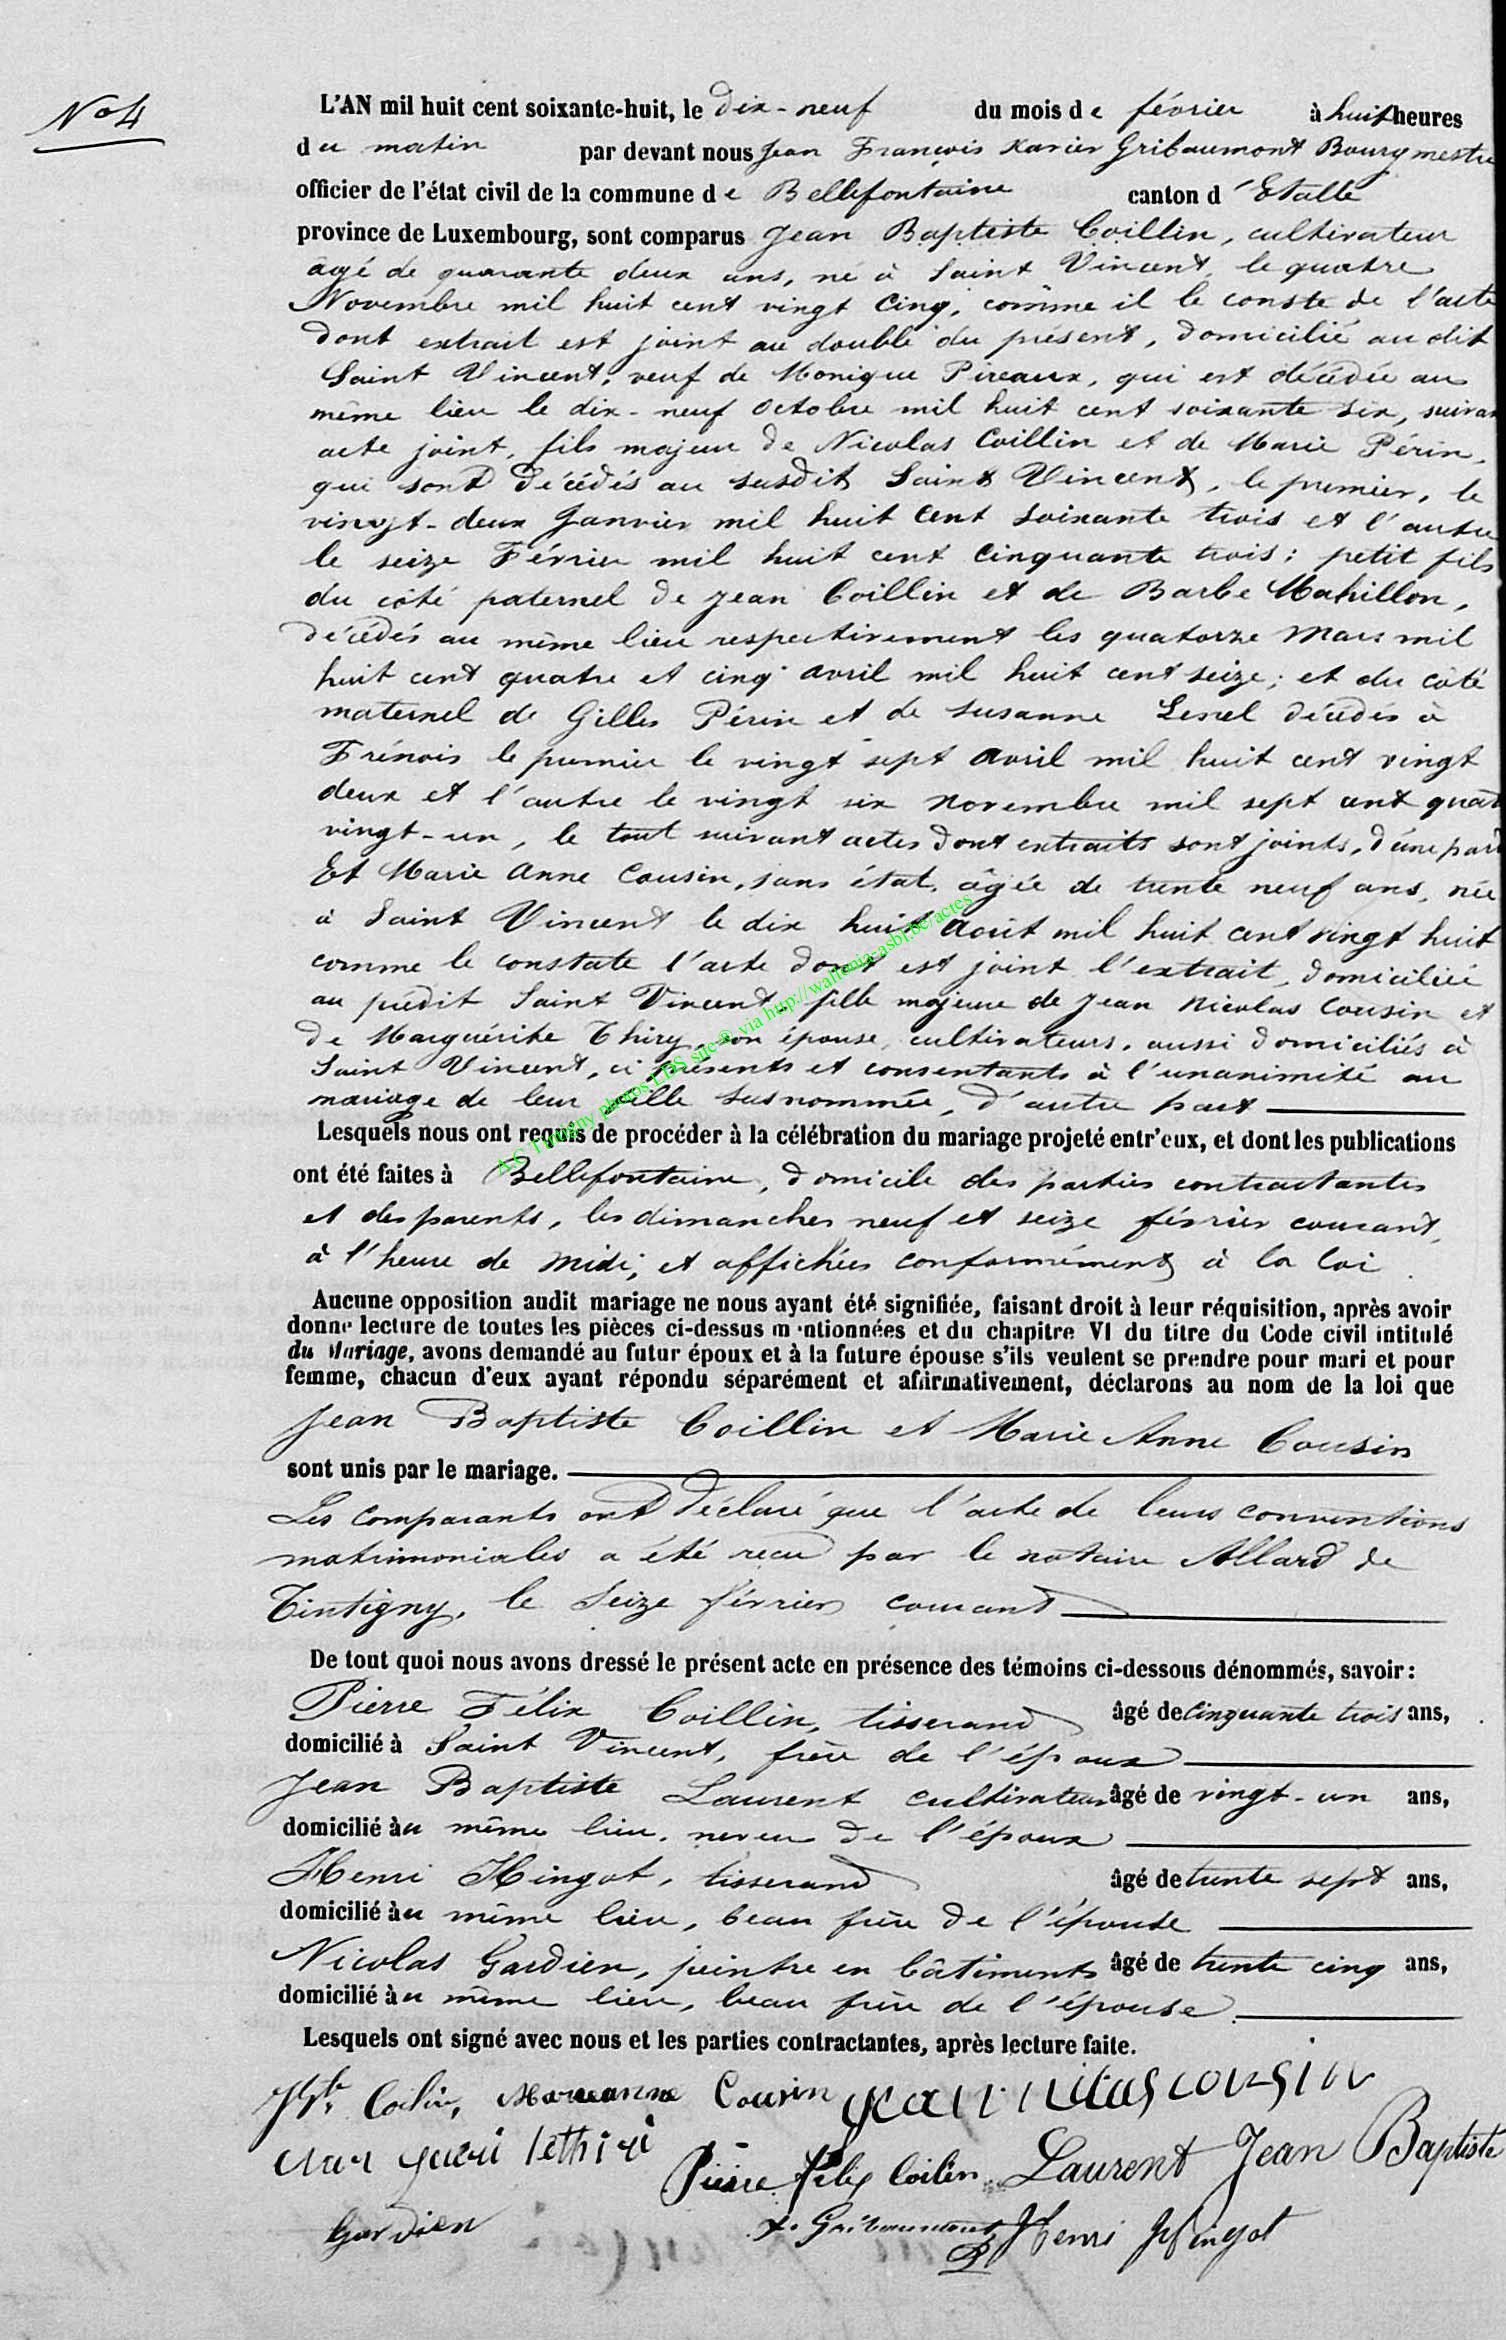 No 4
L'AN mil huit cent soixante-huit, le dix-neuf du mois de février à huit heures
du matin par devant nous Jean François Xavier Gribaumont Bourgmestre
officier de l'état civil de la commune de Bellefontaine canton d'Etalle
province de Luxembourg, sont comparus Jean Baptiste Coillin, cultivateur
âgé de quarante deux ans, né à Saint Vincent, le quatre
Novembre mil huit cent vingt cinq, comme il le conste de l'acte
dont extrait est joint au double du présent, domicilié au dit
Saint Vincent, veuf de Monique Pireaux, qui est décédée au
même lieu le dix-neuf octobre mil huit cent soixante six, suivant
acte joint, fils majeur de Nicolas Coillin et de Marie Périn,
qui sont décédés au susdit Saint Vincent, le premier, le
vingt-deux Janvier mil huit cent soixante trois et l'autre
le seize Février mil huit cent cinquante trois; petit fils
du côté paternel de Jean Coillin et de Barbe Mahillon,
décédés au même lieu respectivement les quatorze Mars mil
huit cent quatre et cinq avril mil huit cent seize; et du côté
maternel de Gilles Périn et de Susanne décédés à
Frénois le premier le vingt sept avril mil huit cent vingt
deux et l'autre le vingt six novembre mil sept cent quatre
vingt-un, le tout suivant actes dont extraits sont joints, d'une part
Et Marie Anne Cousin, sans état, âgée de trente neuf ans, née
à Saint Vincent le dix huit août mil huit cent vingt huit
comme le constate l'acte dont est joint l'extrait, domiciliée
au prédit Saint Vincent, fille majeure de Jean Nicolas Cousin et
de Marguérite Thiry, son épouse, cultivateurs, aussi domiciliés à
Saint Vincent, ci présents et consentants à l'unanimité au
mariage de leur fille susnommée, d'autre part
A.C Tintigny photos LDS site® via http://walloniacasbl.be/actes
Lesquels nous ont requis de procéder à la célébration du mariage projeté entr'eux, et dont les publications
ont été faites à Bellefontaine, domicile des parties contractantes
et des parents, les dimanches neuf et seize février courant,
à l'heure de midi, et affichées conformément à la loi.
Aucune opposition audit mariage ne nous ayant été signifiée, faisant droit à leur réquisition, après avoir
donné lecture de toutes les pièces ci-dessus mentionnées et du chapitre VI du titre du Code civil intitulé
du Mariage, avons demandé au futur époux et à la future épouse s'ils veulent se prendre pour mari et pour
femme, chacun d'eux ayant répondu séparément et affirmativement, déclarons au nom de la loi que
Jean Baptiste Coillin et Marie Anne Cousin
sont unis par le mariage.
Les comparants ont déclaré que l'acte de leurs conventions
matrimoniales a été recu par le notaire Allard de
Tintigny, le seize février courant
De tout quoi nous avons dressé le présent acte en présence des témoins ci-dessous dénommés, savoir:
Pierre Félix Coillin, tisserand âgé de cinquante trois ans,
domicilié à Saint Vincent, frère de l'époux
Jean Baptiste Laurent cultivateur âgé de vingt-un ans,
domicilié au même lieu, neveu de l'époux
Henri Hingot, tisserand âgé de trente sept ans,
domicilié au même lieu, beau frère de l'épouse
Nicolas Gardien, peintre en bâtiments âgé de trente cinq ans,
domicilié au même lieu, beau frère de l'épouse
Lesquels ont signé avec nous et les parties contractantes, après lecture faite.
Coilin, Marieanne Cousin jean nicolas cousin
Pierre félix Coilin Laurent Jean Baptiste
Gardien X. Gribaumont Henri Hingot